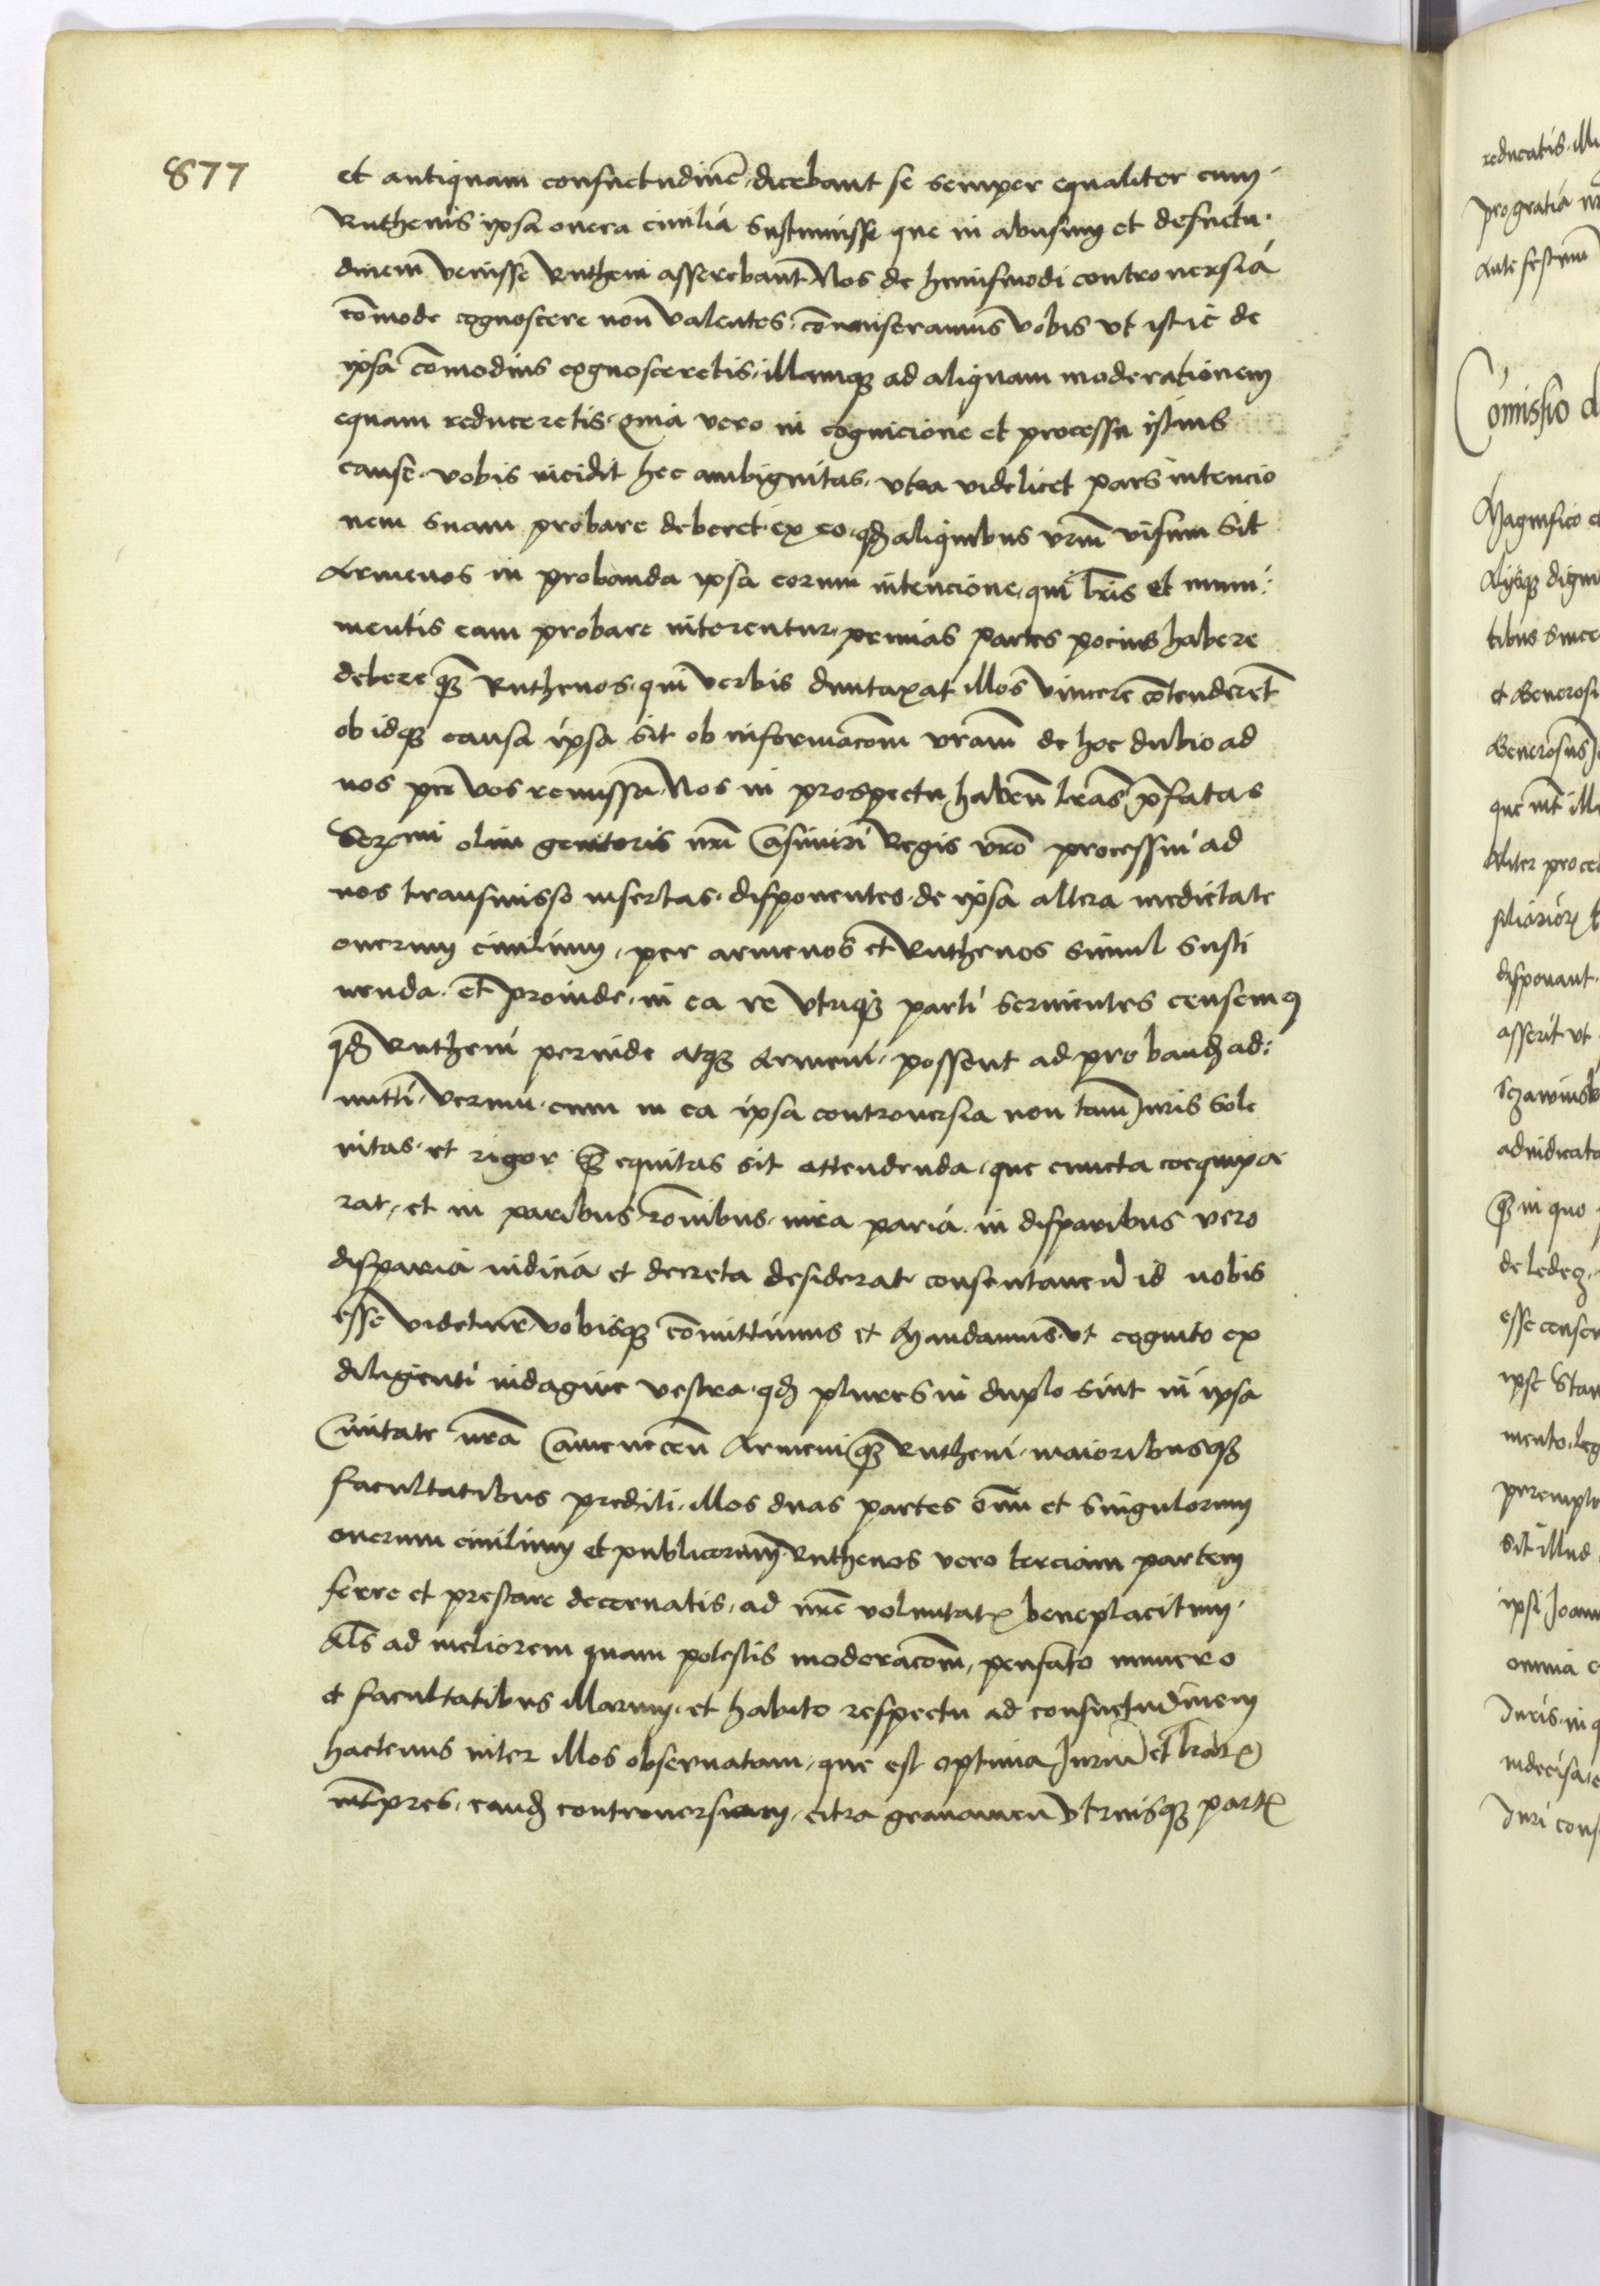 877
et antiquam consuetudinē dicebant se semper equaliter cum
Ruthenis ipsa onera ciuilia sustinuisse que in abusum et desuetu
dinem venisse Rutheni asserebant Nos de huiusmodi controuersia
cōmode cognoscere non valentes cōmiseramus vobis vt istic de
ipsa cōmodius cognosceretis illamqʒ ad aliquam moderationem
equam reduceretis quia vero in cognicione et processu istius
cause vobis incidit hec ambiguitas vtra videlicet pars intencio
nem suam probare deberet ex eo qđ aliquibus vrm̄ visum sit
Armenos in probanda ipsa eorum intencione qui lr̄is et muni
mentis eam probare niterentur primas partes pocius habere
debere qʒ Ruthenos qui verbis duntaxat illos vincere cōtenderet
ob idqʒ causa ipsa sit ob informacōm vrām de hoc dubio ad
nos per vos remissa Nos in prospectu haben̄ lrās p̄fatas
Serᵐⁱ olim genitoris nrī Casimiri Regis vrō processui ad
nos transmisso insertas disponentes de ipsa altera medietate
onerum ciuilium per armenos et Ruthenos simul susti
nenda et proinde in ea re vtriqʒ parti seruientes censemꝰ
qđ Rutheni perinde atqʒ Armeni possent ad probanđ ad
mitti verum cum in ea ipsa controuersia non tam Juris sole
nitas et rigor qʒ equitas sit attendenda que cuncta coequipa
rat et in paribus rōnibus iura paria in disparibus vero
disparia iudicia et decreta desiderat consentaneū id nobis
esse videtur vobisqʒ cōmittimus et mandamus vt cognito ex
diligenti indagine vestra qđ plures in duplo sint in ipsa
Ciuitate nrā Camenecen̄ Armeni qʒ Rutheni maioribusqʒ
facultatibus prediti illos duas partes oīm et singulorum
onerum ciuilium et publicorum Ruthenos vero terciam partem
ferre et prestare decernatis ad nrē voluntatꝭ beneplacitum
Als̄ ad meliorem quam potestis moderacōm pensato numero
et facultatibus illorum et habito respectu ad consuetudinem
hactenus inter illos obseruatam que est optima Juriū et lrārꝝ
int̄pres eanđ controuersiam citra grauamen vtriusqʒ partꝭ
reducatis
pro gratia
Ante festum
Cōmissio
Magnifico
Alijsqʒ
tibus
et Generosi
Generosus
que
Aliter
disponant
asserit vt
adiudicata
qʒ in quo
esse
ipse
mento
sit illud
ipsi
omnia
Juris
indecisa
Juri